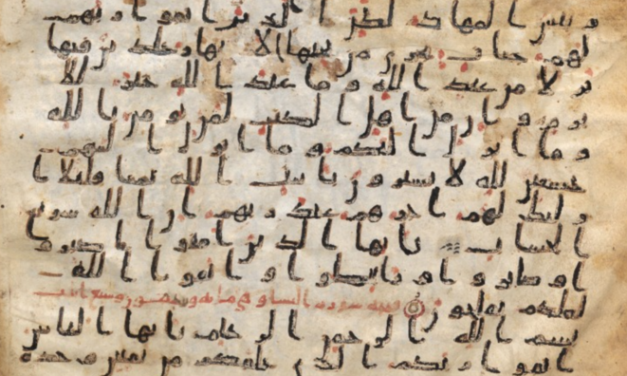 و بئس المهاد لكن الذين اتقوا ربهم
لهم جنات تجري من تحتها الا نهار خلدين فيها
نزلا من عند الله و ما عند الله خير للا
برار و ان من اهل الكتب لمن يؤمن بالله
و ما انزل اليكم و ما انزل اليهم
خشعين لله لا يشترون بايت الله ثمنا قليلا ا
ولئك لهم اجرهم عند ربهم ان الله سريع
الحساب يايها الذين امنوا اصبروا
و صابروا و رابطوا و اتقوا الله
لعلكم تفلحون سورة النسا وهي مايه
بسم الله الرحمن الرحيم يايها الناس
اتقوا ربكم الذي خلقكم من نفس وحدة